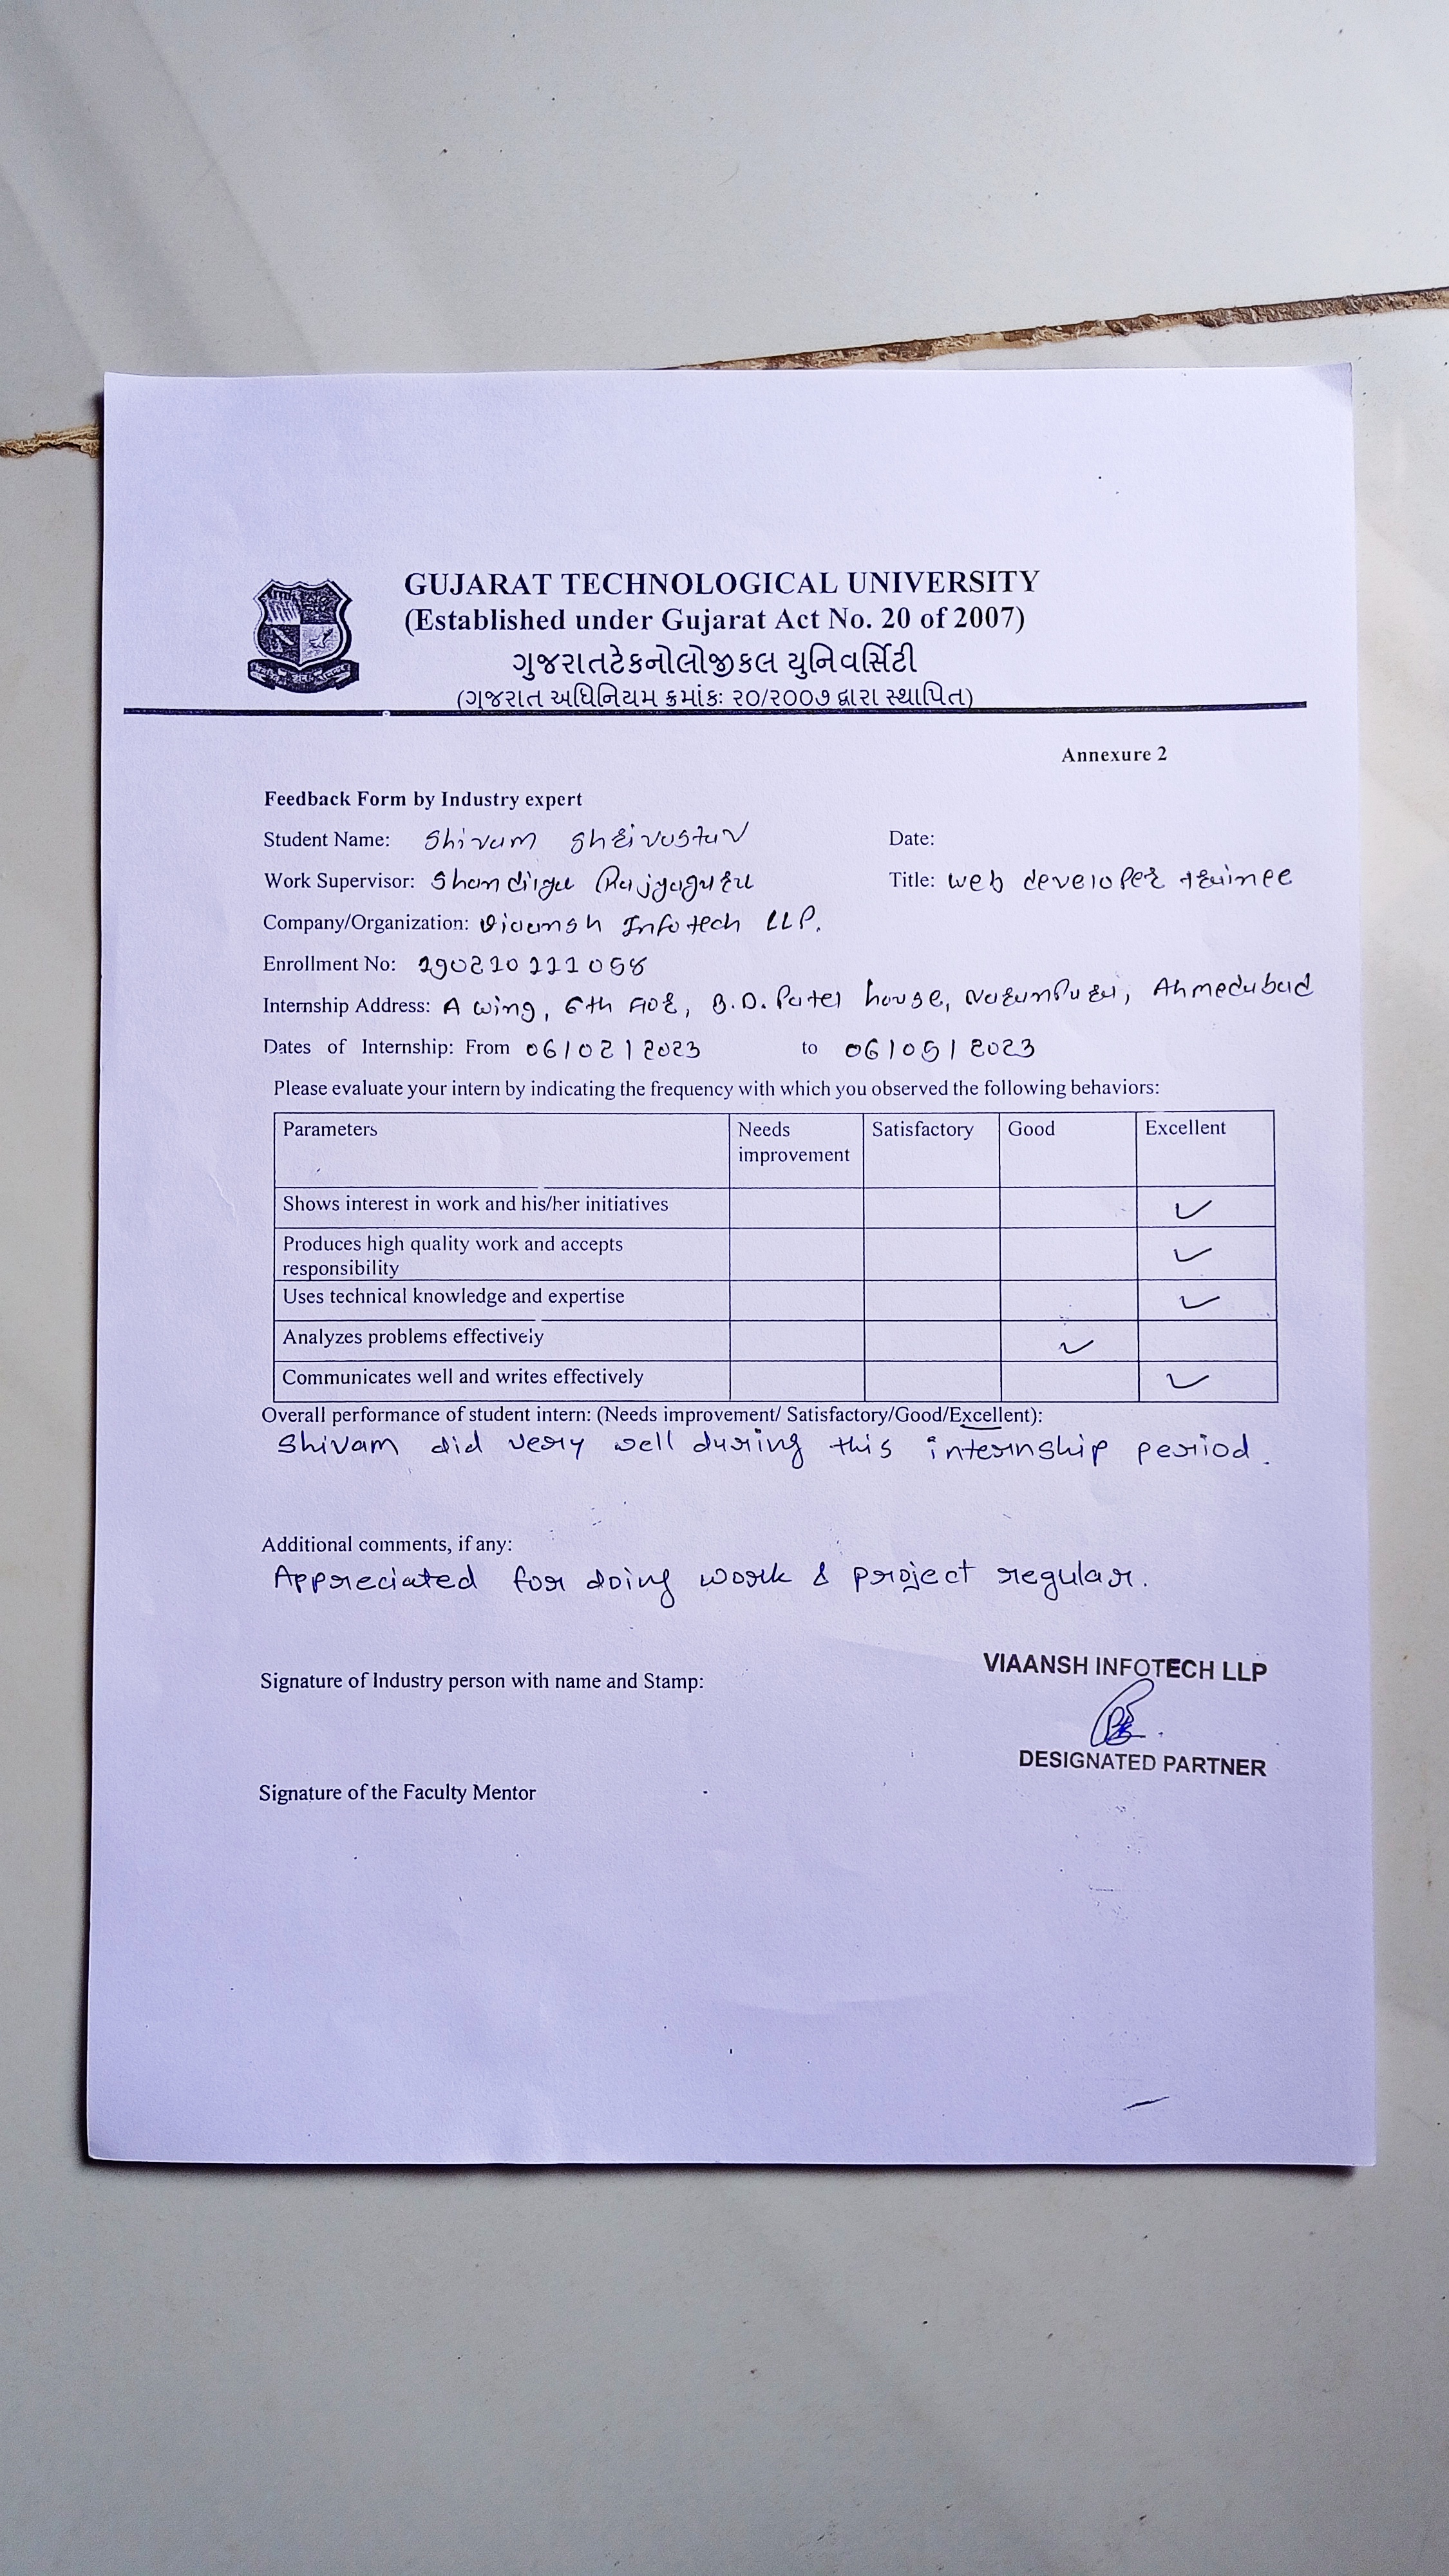 GUJARAT TECHNOLOGICAL UNIVERSITY
(Established under Gujarat Act No. 20 of 2007)
ગુજરાતટેકનોલોજીકલ યુનિવર્સિટી
(ગુજરાત અધિનિયમ ક્રમાંકઃ ૨૦/૨૦૦૭ દ્વારા સ્થાપિત)
Annexure 2
Feedback Form by Industry expert
Student Name: Shivam Shrivastav Date:
Work Supervisor: Rajyaguru Title: web developer trainee
Company/Organization: Viaansh Infotech LLP.
Enrollment No: 190210111058
Internship Address: A wing, 6th flor, B.D. Patel house, Naranpura, Ahmedabad
Dates of Internship: From 06/02/2023 to 06/05/2023
Please evaluate your intern by indicating the frequency with which you observed the following behaviors:
Parameters Needs improvement Satisfactory Good Excellent
Shows interest in work and his/her initiatives ✓
Produces high quality work and accepts responsibility ✓
Uses technical knowledge and expertise ✓
Analyzes problems effectively ✓
Communicates well and writes effectively ✓
Overall performance of student intern: (Needs improvement/ Satisfactory/Good/Excellent):
Shivam did very well during this internship period.
Additional comments, if any:
Appreciated for doing work & project regular.
VIAANSH INFOTECH LLP
Signature of Industry person with name and Stamp:
DESIGNATED PARTNER
Signature of the Faculty Mentor